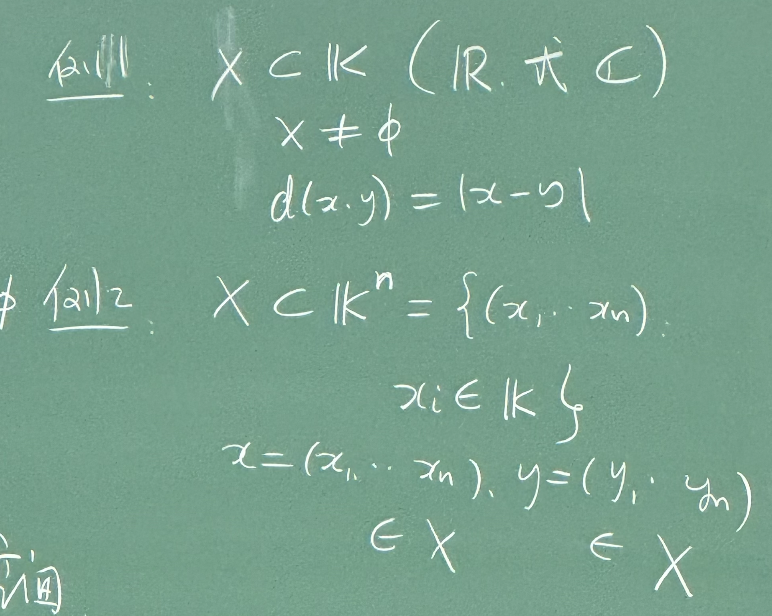 例1. X ⊂ 𝕂 (ℝ. 又は ℂ)
X ≠ φ
d(x.y) = |x-y|
例2. X ⊂ 𝕂ⁿ = {(x₁, ‥ xₙ).
xᵢ ∈ 𝕂}
x = (x₁, ‥ xₙ). y = (y₁, ‥ yₙ)
∈ X ∈ X